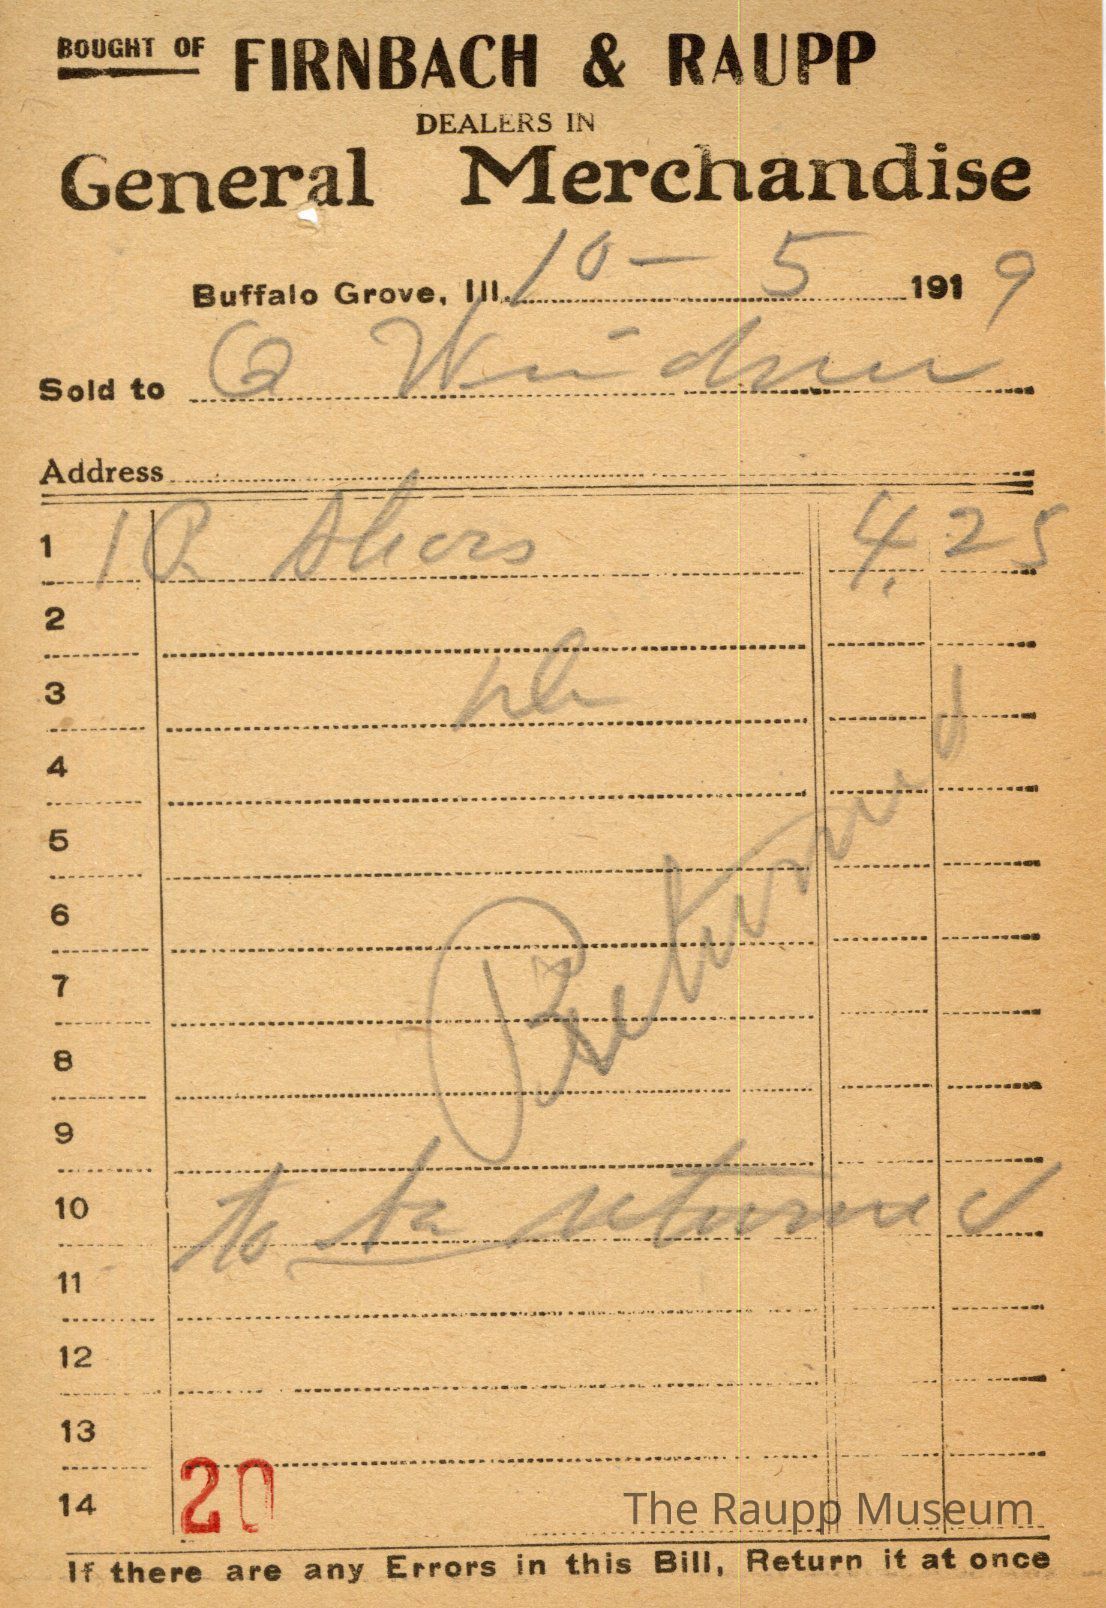 BOUGHT OF FIRNBACH & RAUPP
DEALERS IN
General Merchandise
Buffalo Grove, Ill. 10 - 5 1919
Sold to
Address
1 1 P. Shoes 4.25
2
3
4
5
6
7
8
Returned
9
10 to be returned
11
12
13
14 20
The Raupp Museum
If there are any Errors in this Bill, Return it at once